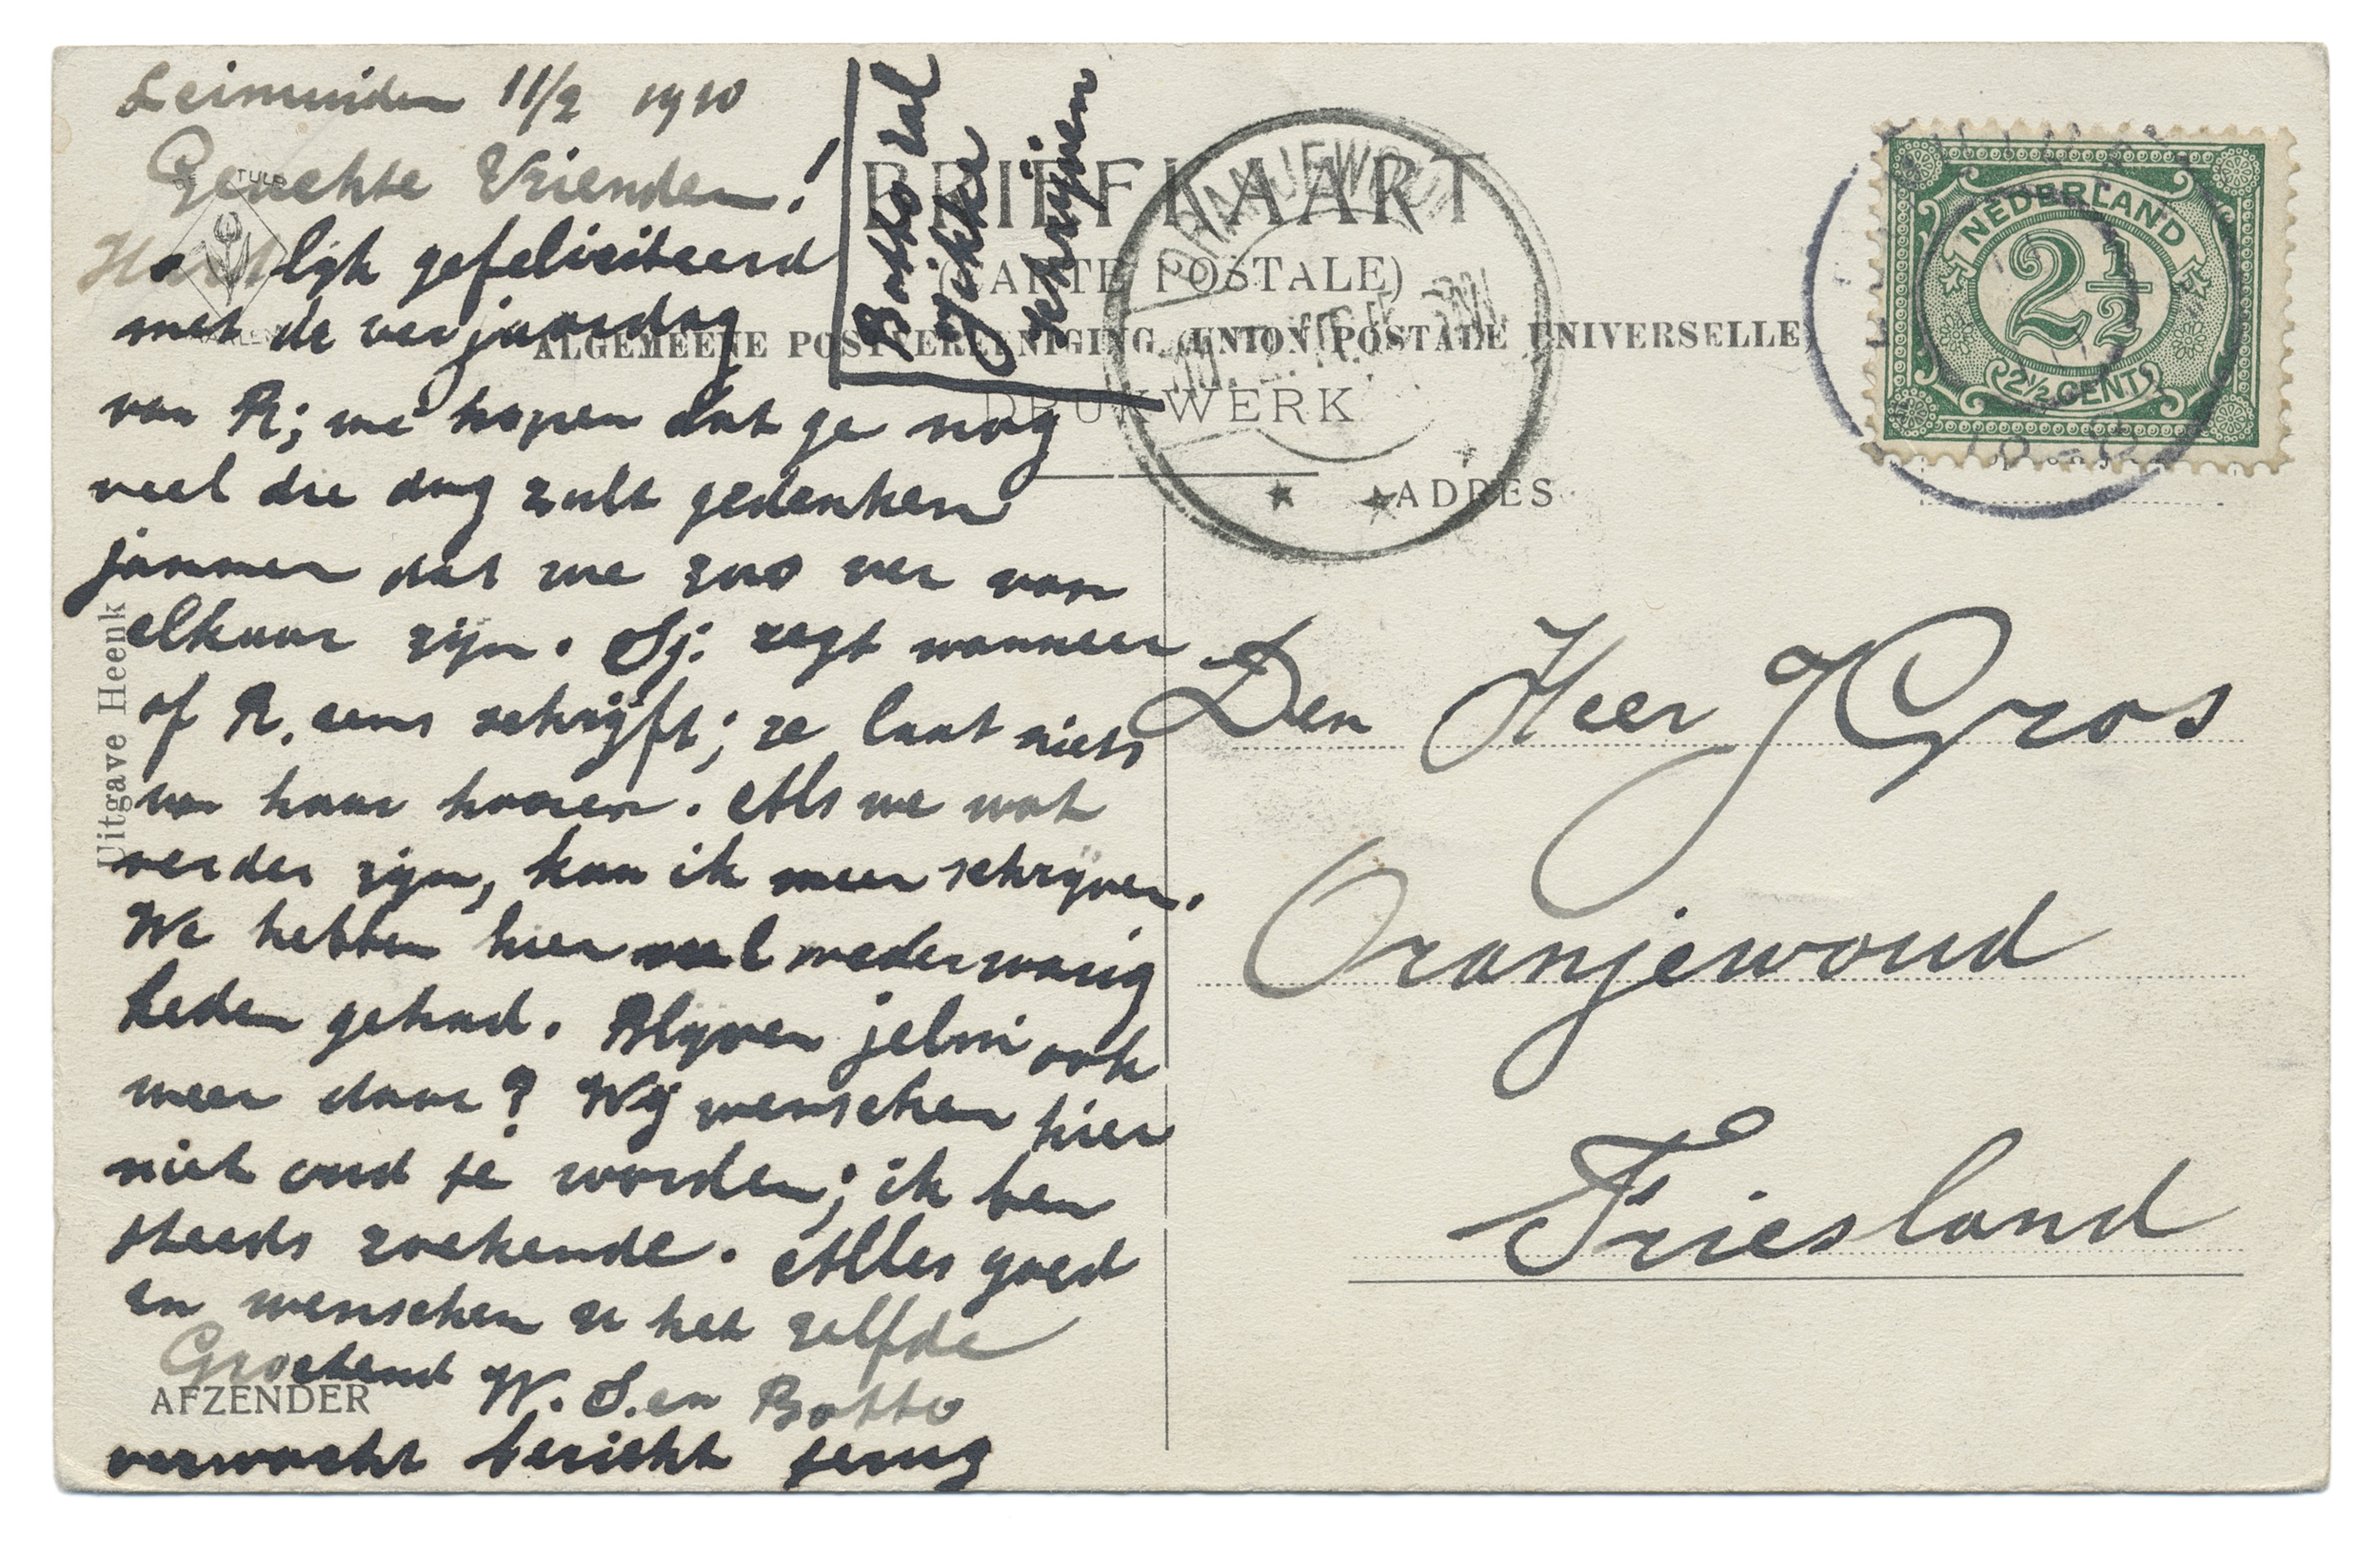 Leimuiden 11/2 1910
Geachte Vrienden!
Hartelijk gefeliciteerd
met de verjaardag
van R; we hopen dat ge nog
veel die dag zult gedenken
jammer dat we zoo ver van
elkaar zijn. Sj: zegt wanneer
of R. eens schrijft; ze laat niets
van haar hooren. Als we wat
verder zijn, kan ik meer schrijven.
We hebben hier veel wederwarig
heden gehad. Blijven jelui ook
meer daar? Wij wenschen hier
niet oud te worden; ik ben
steeds zoekende. Alles goed
en wenschen u het zelfde
Groetend W. S. en Botto
verwacht bericht terug
Botto zal
Jikke
schrijven
TULP
BRIEFKAART
(CARTE POSTALE)
ALGEMEENE POSTVEREENIGING (UNION POSTALE UNIVERSELLE
DRUKWERK
ADRES
ORANJEWOUD
NEDERLAND
2½
2½ CENT
Den Heer J Gros
Oranjewoud
Friesland
Uitgave Heenk
AFZENDER